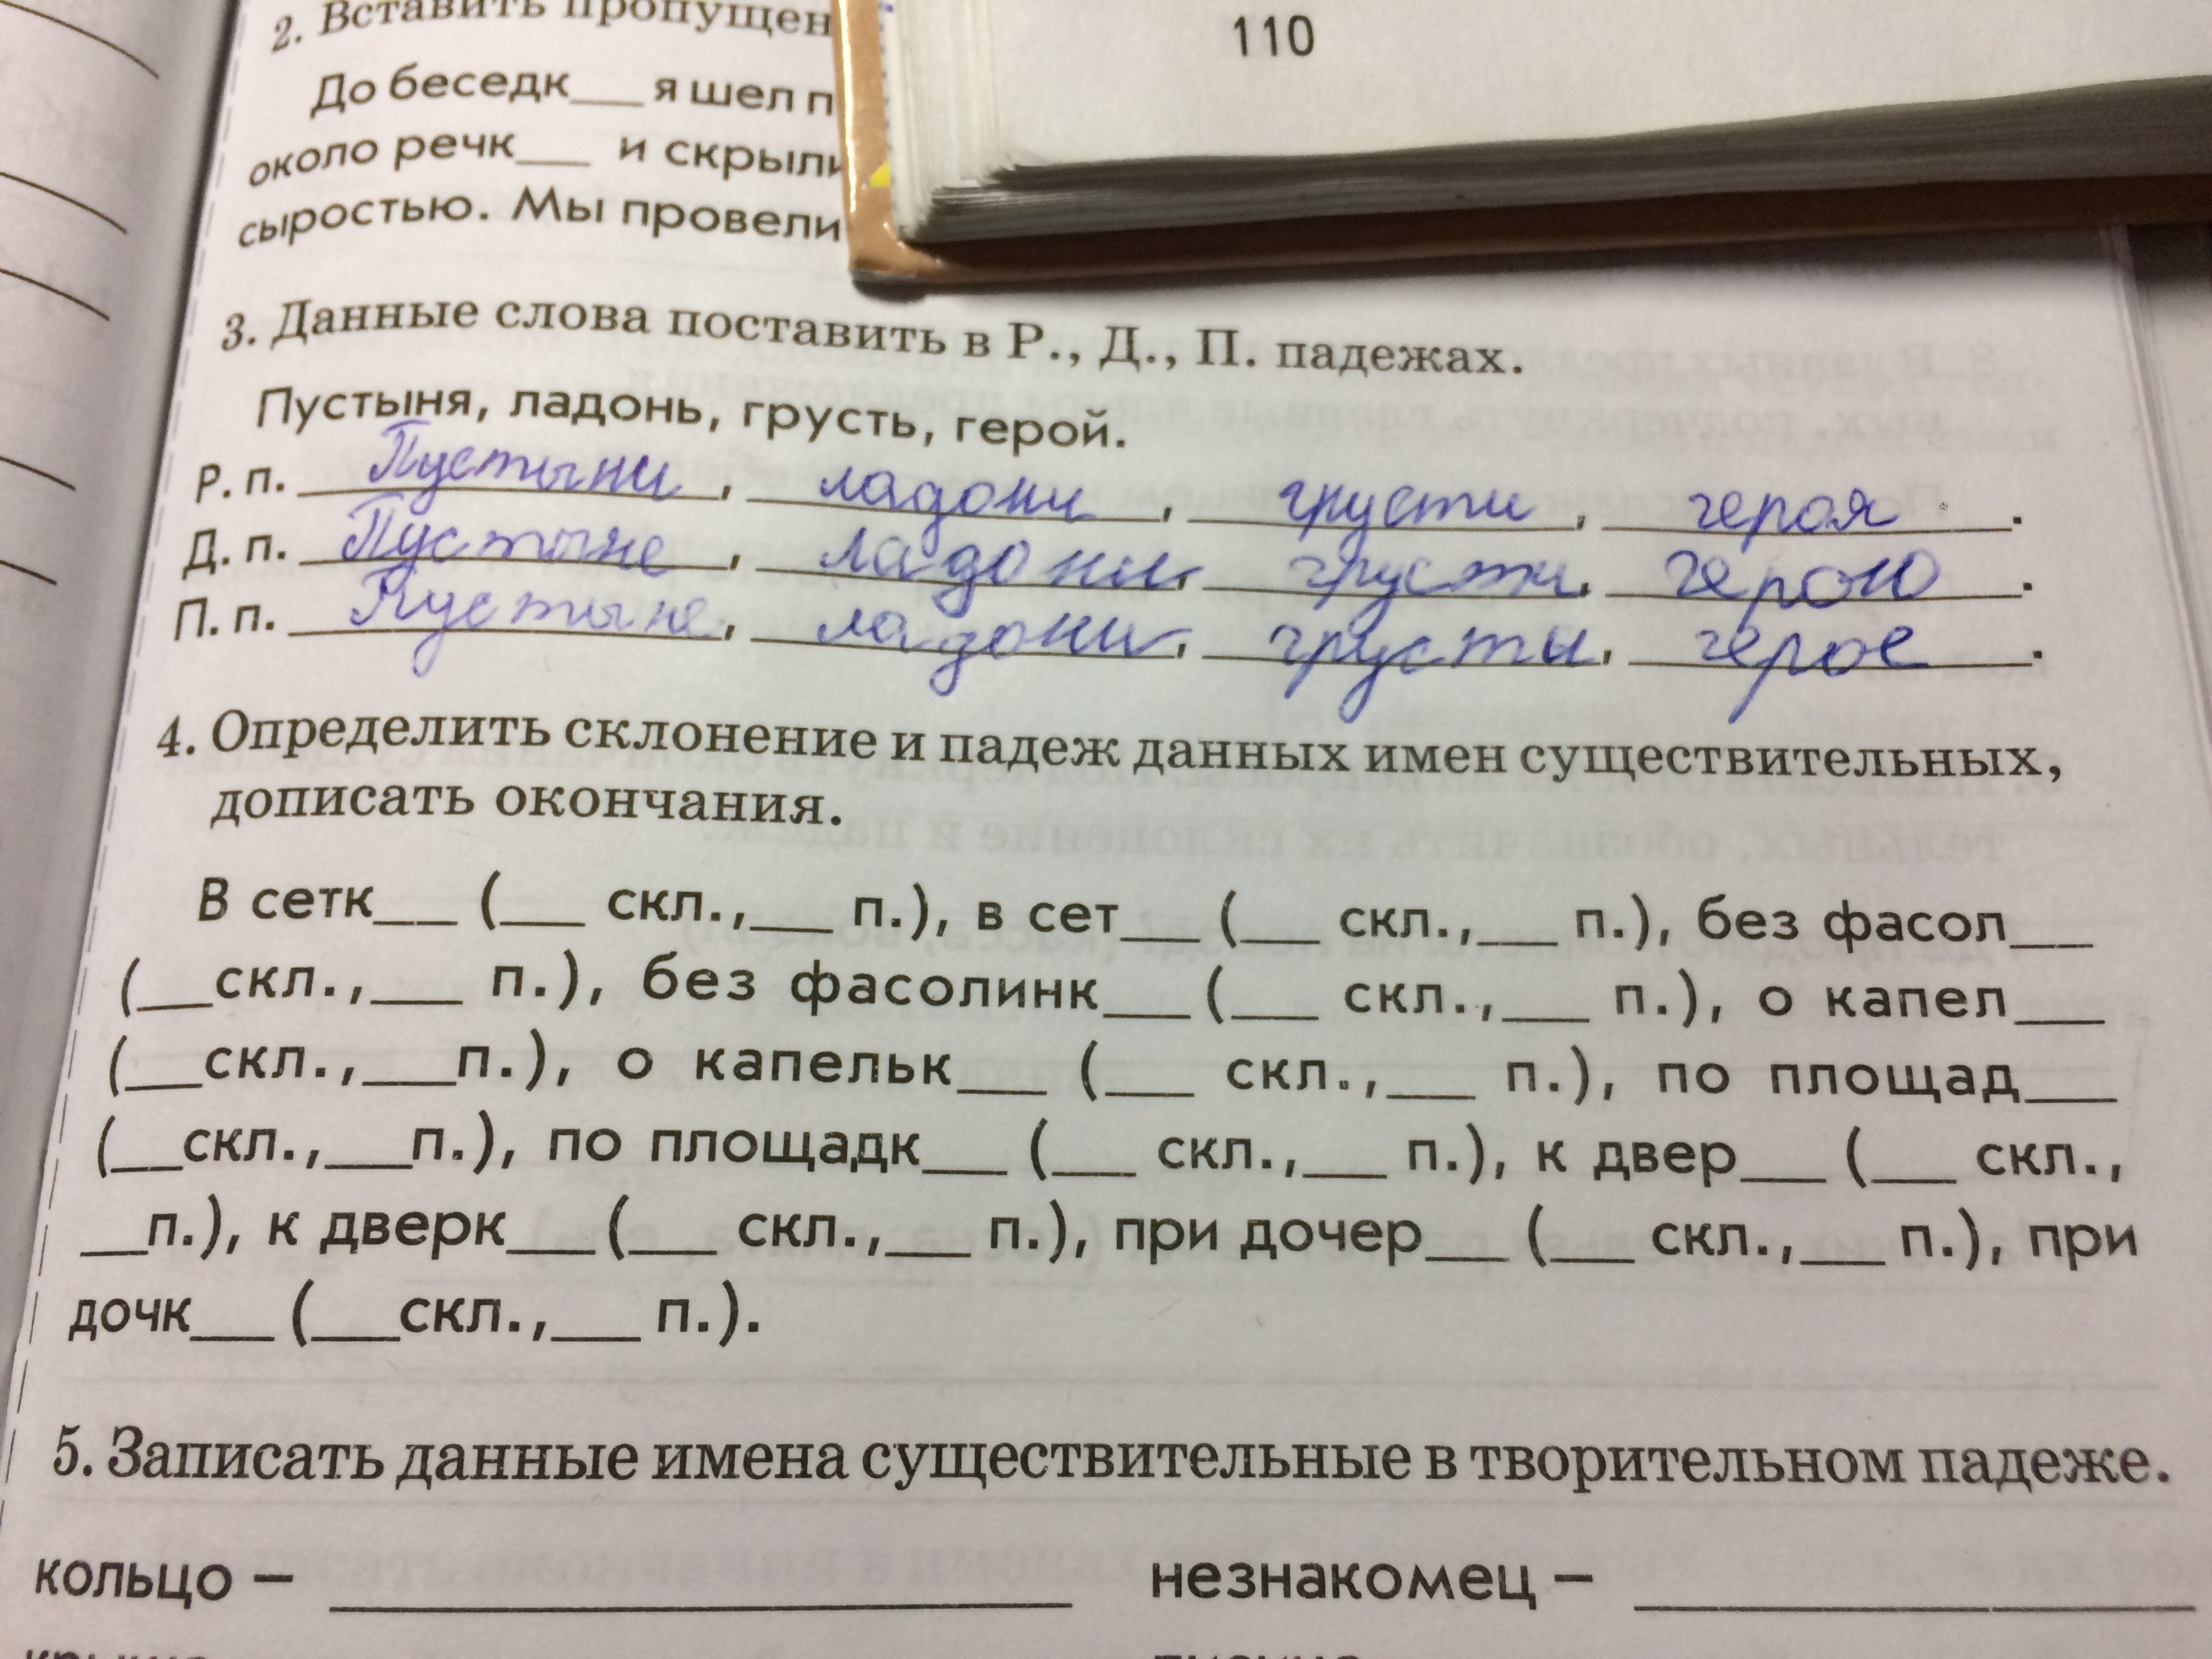 110
2. Вставить
До беседк___ я шел п
около речк___ и скрыли
сыростью. Мы провели
3. Данные слова поставить в Р., Д., П. падежах.
Пустыня, ладонь, грусть, герой.
Р. п. Пустыни, ладони, грусти, героя.
Д. п. Пустыне, ладони, грусти, герою.
П. п. Пустыне, ладони, грусти, герое.
4. Определить склонение и падеж данных имен существительных,
дописать окончания.
В сетк___ (___ скл.,___ п.), в сет___ (___ скл.,___ п.), без фасол___
(___скл.,___ п.), без фасолинк___(___ скл.,___ п.), о капел___
(___скл.,___п.), о капельк___ (___ скл.,___ п.), по площад___
(___скл.,___п.), по площадк___ (___ скл.,___ п.), к двер___ (___ скл.,
___п.), к дверк___(___ скл.,___ п.), при дочер___ (___ скл.,___ п.), при
дочк___ (___скл.,___ п.).
5. Записать данные имена существительные в творительном падеже.
кольцо – ___ незнакомец – ___